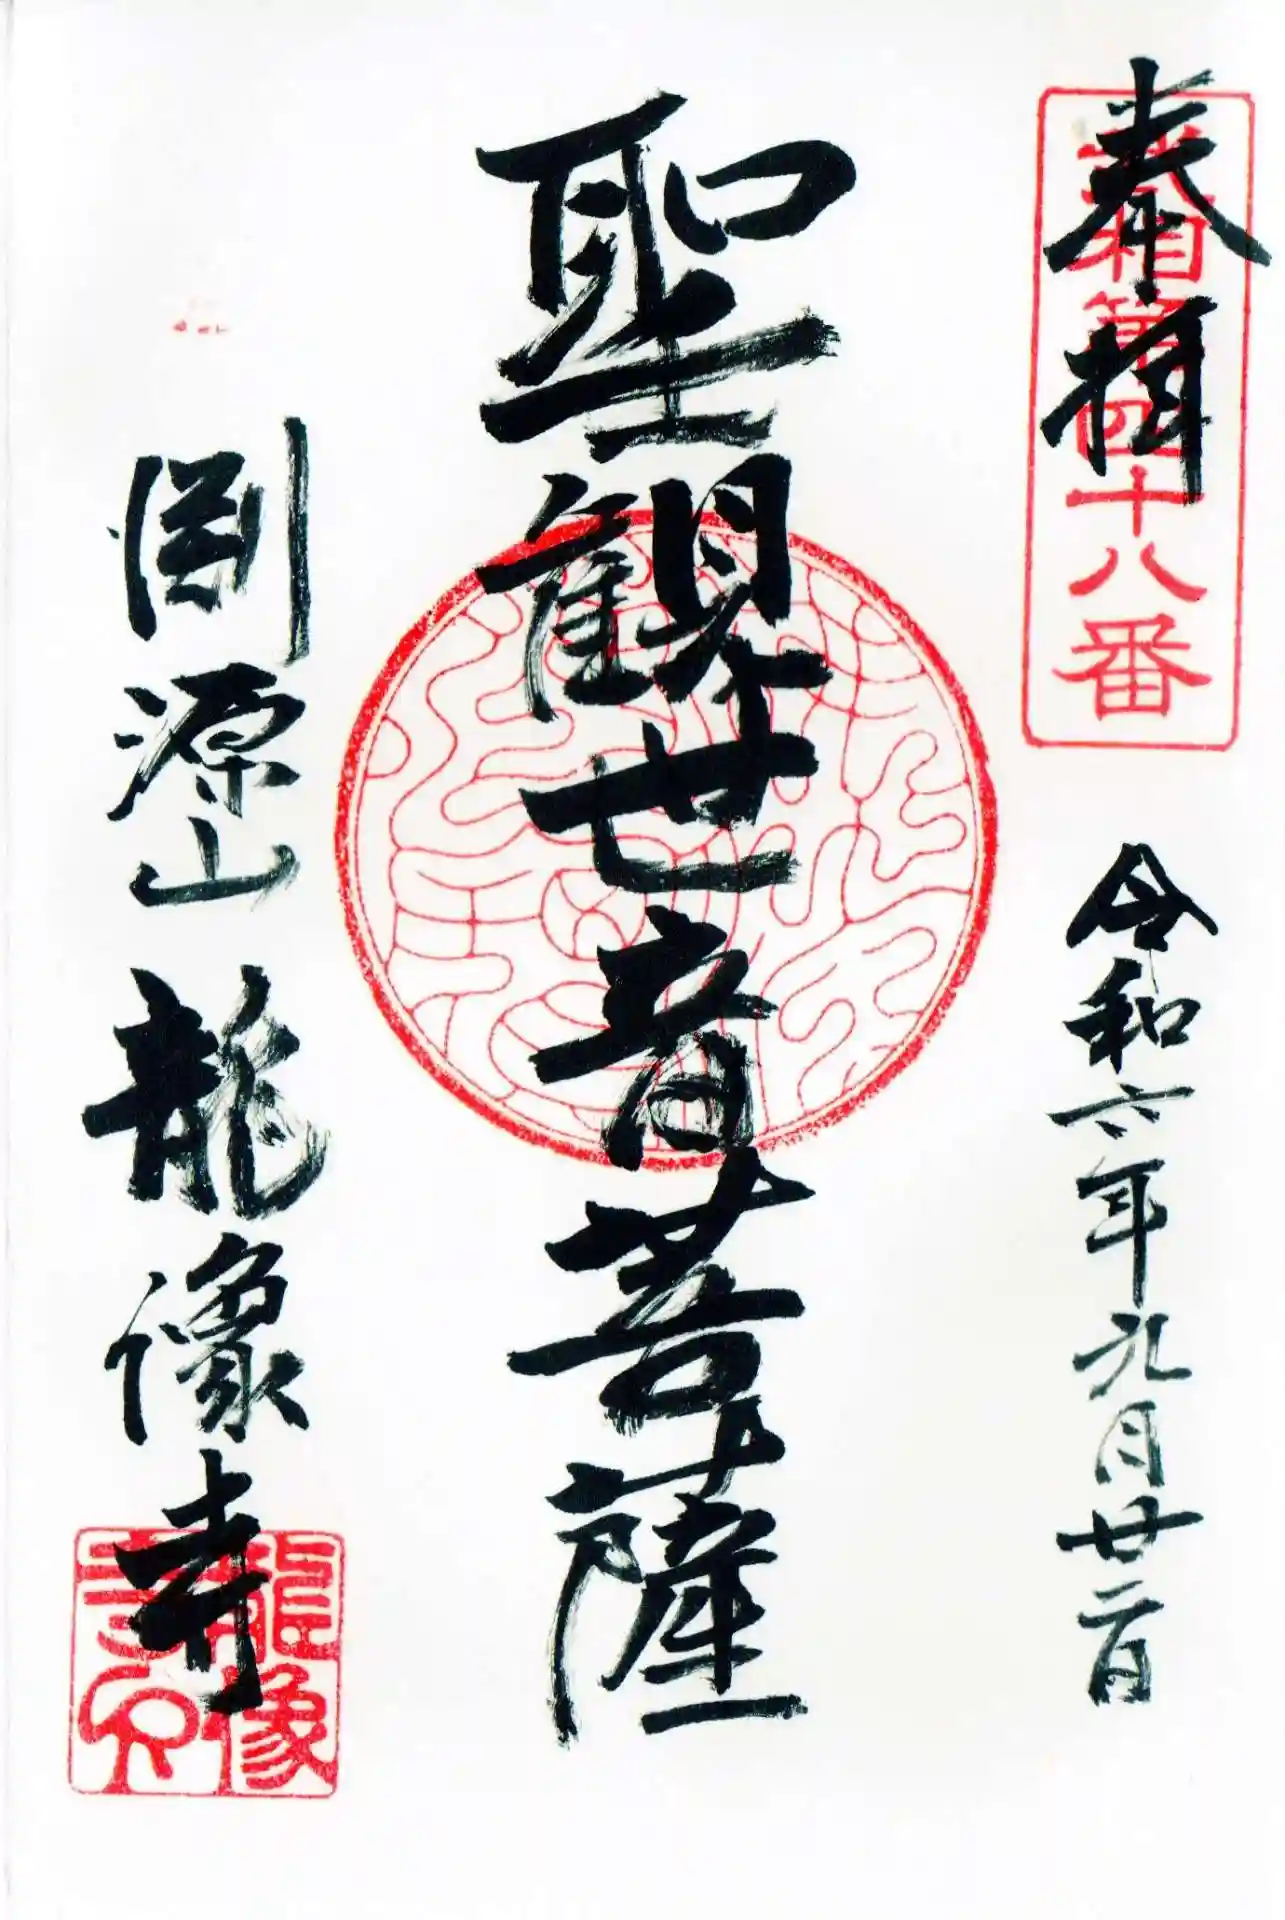 奉拝
武相第四十八番
令和六年九月廿二日
聖観世音菩薩
渕源山 龍像寺
龍像寺印